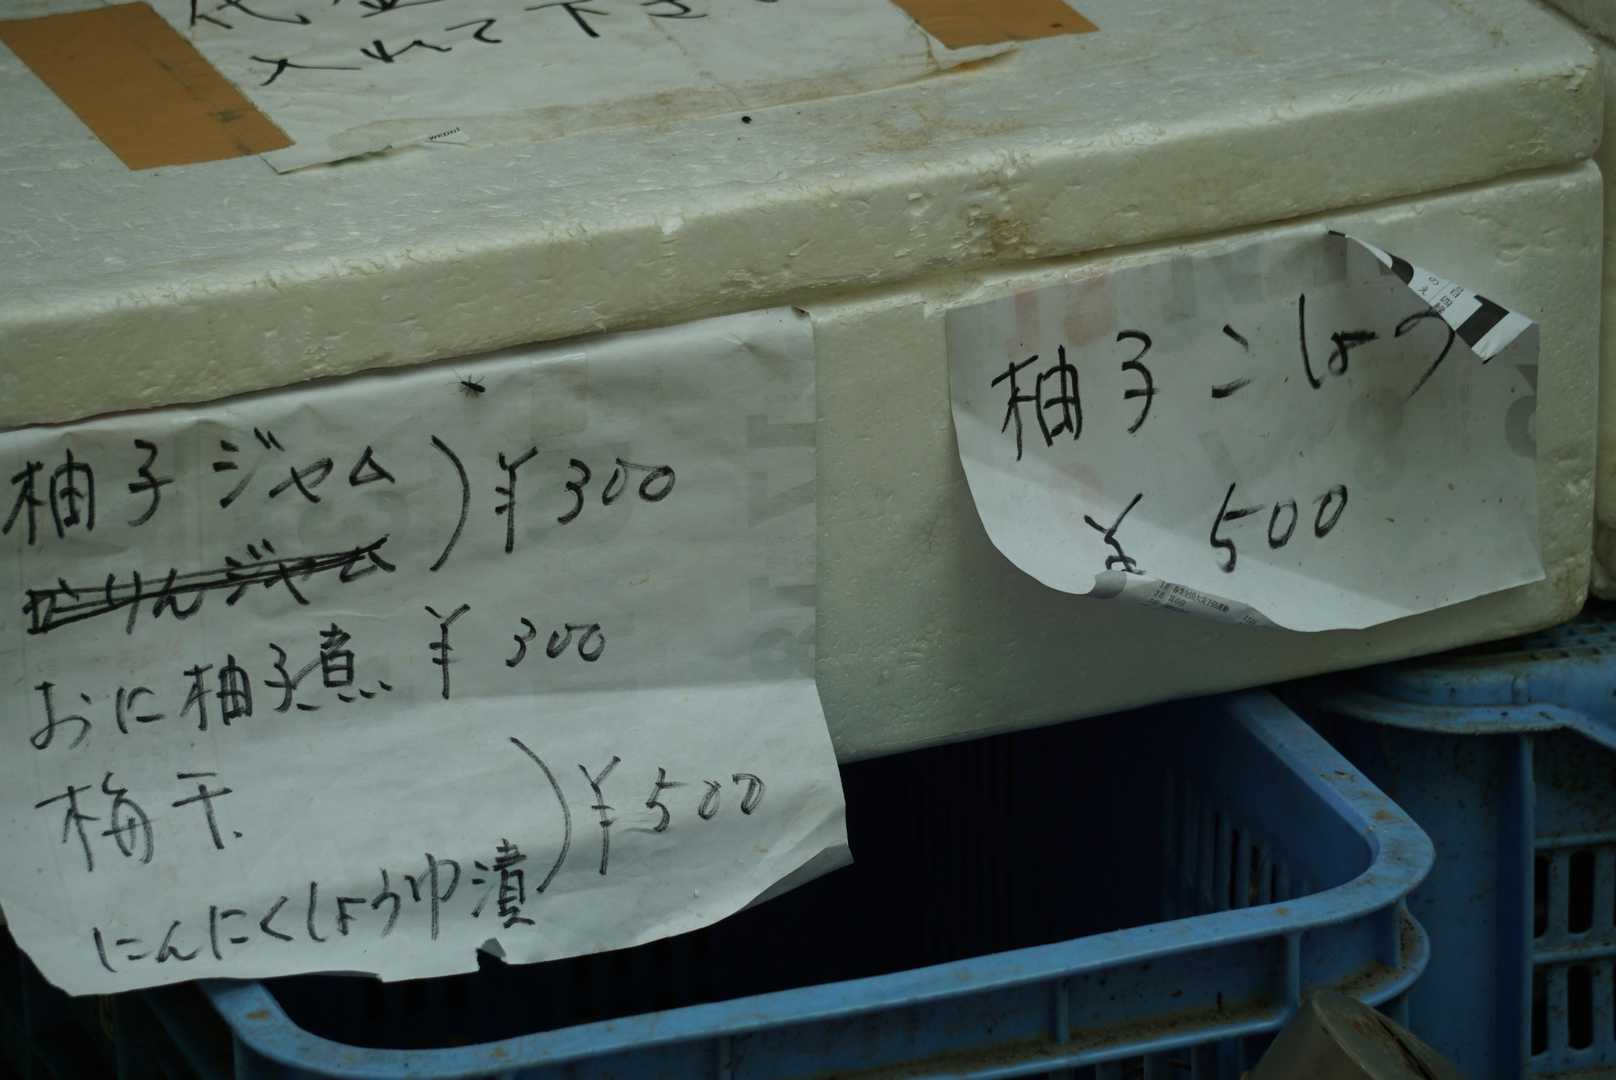 代金
入れて下さい
柚子ジャム ) ¥300
かりんジャム
おに柚子煮 ¥300
梅干 ) ¥500
にんにくしょうゆ漬
柚子こしょう
¥500